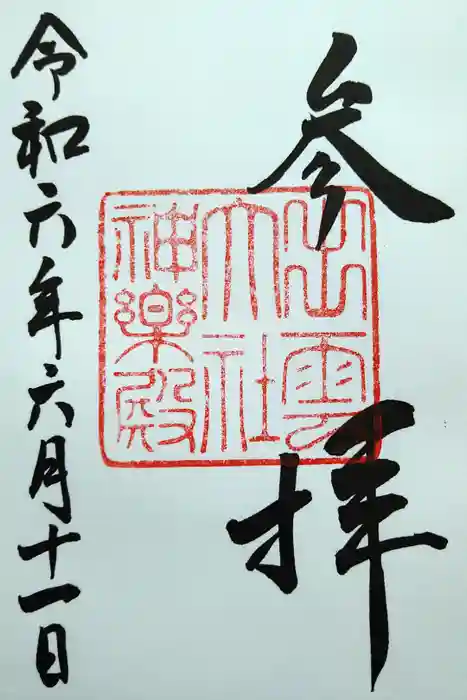 参拝
出雲
大社
神樂殿
令和六年六月十一日